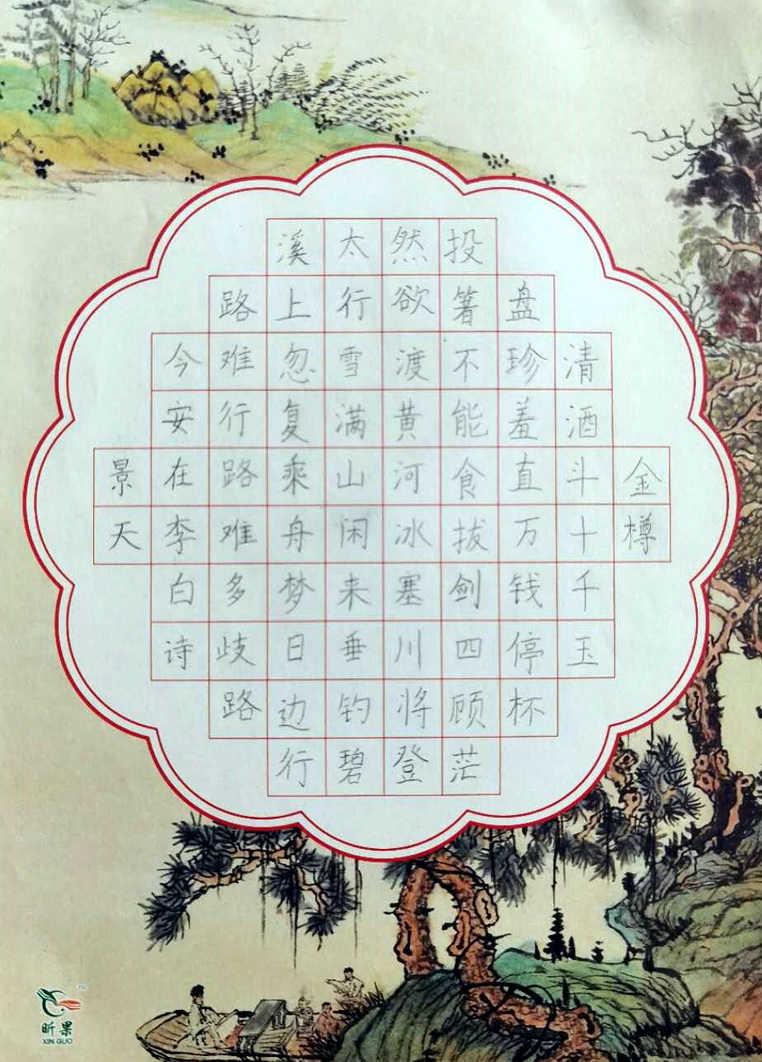 金樽
清酒斗十千玉
盘珍羞直万钱停杯
投箸不能食拔剑四顾茫
然欲渡黄河冰塞川将登
太行雪满山闲来垂钓碧
溪上忽复乘舟梦日边行
路难行路难多歧路
今安在李白诗
景天
昕果
XIN GUO